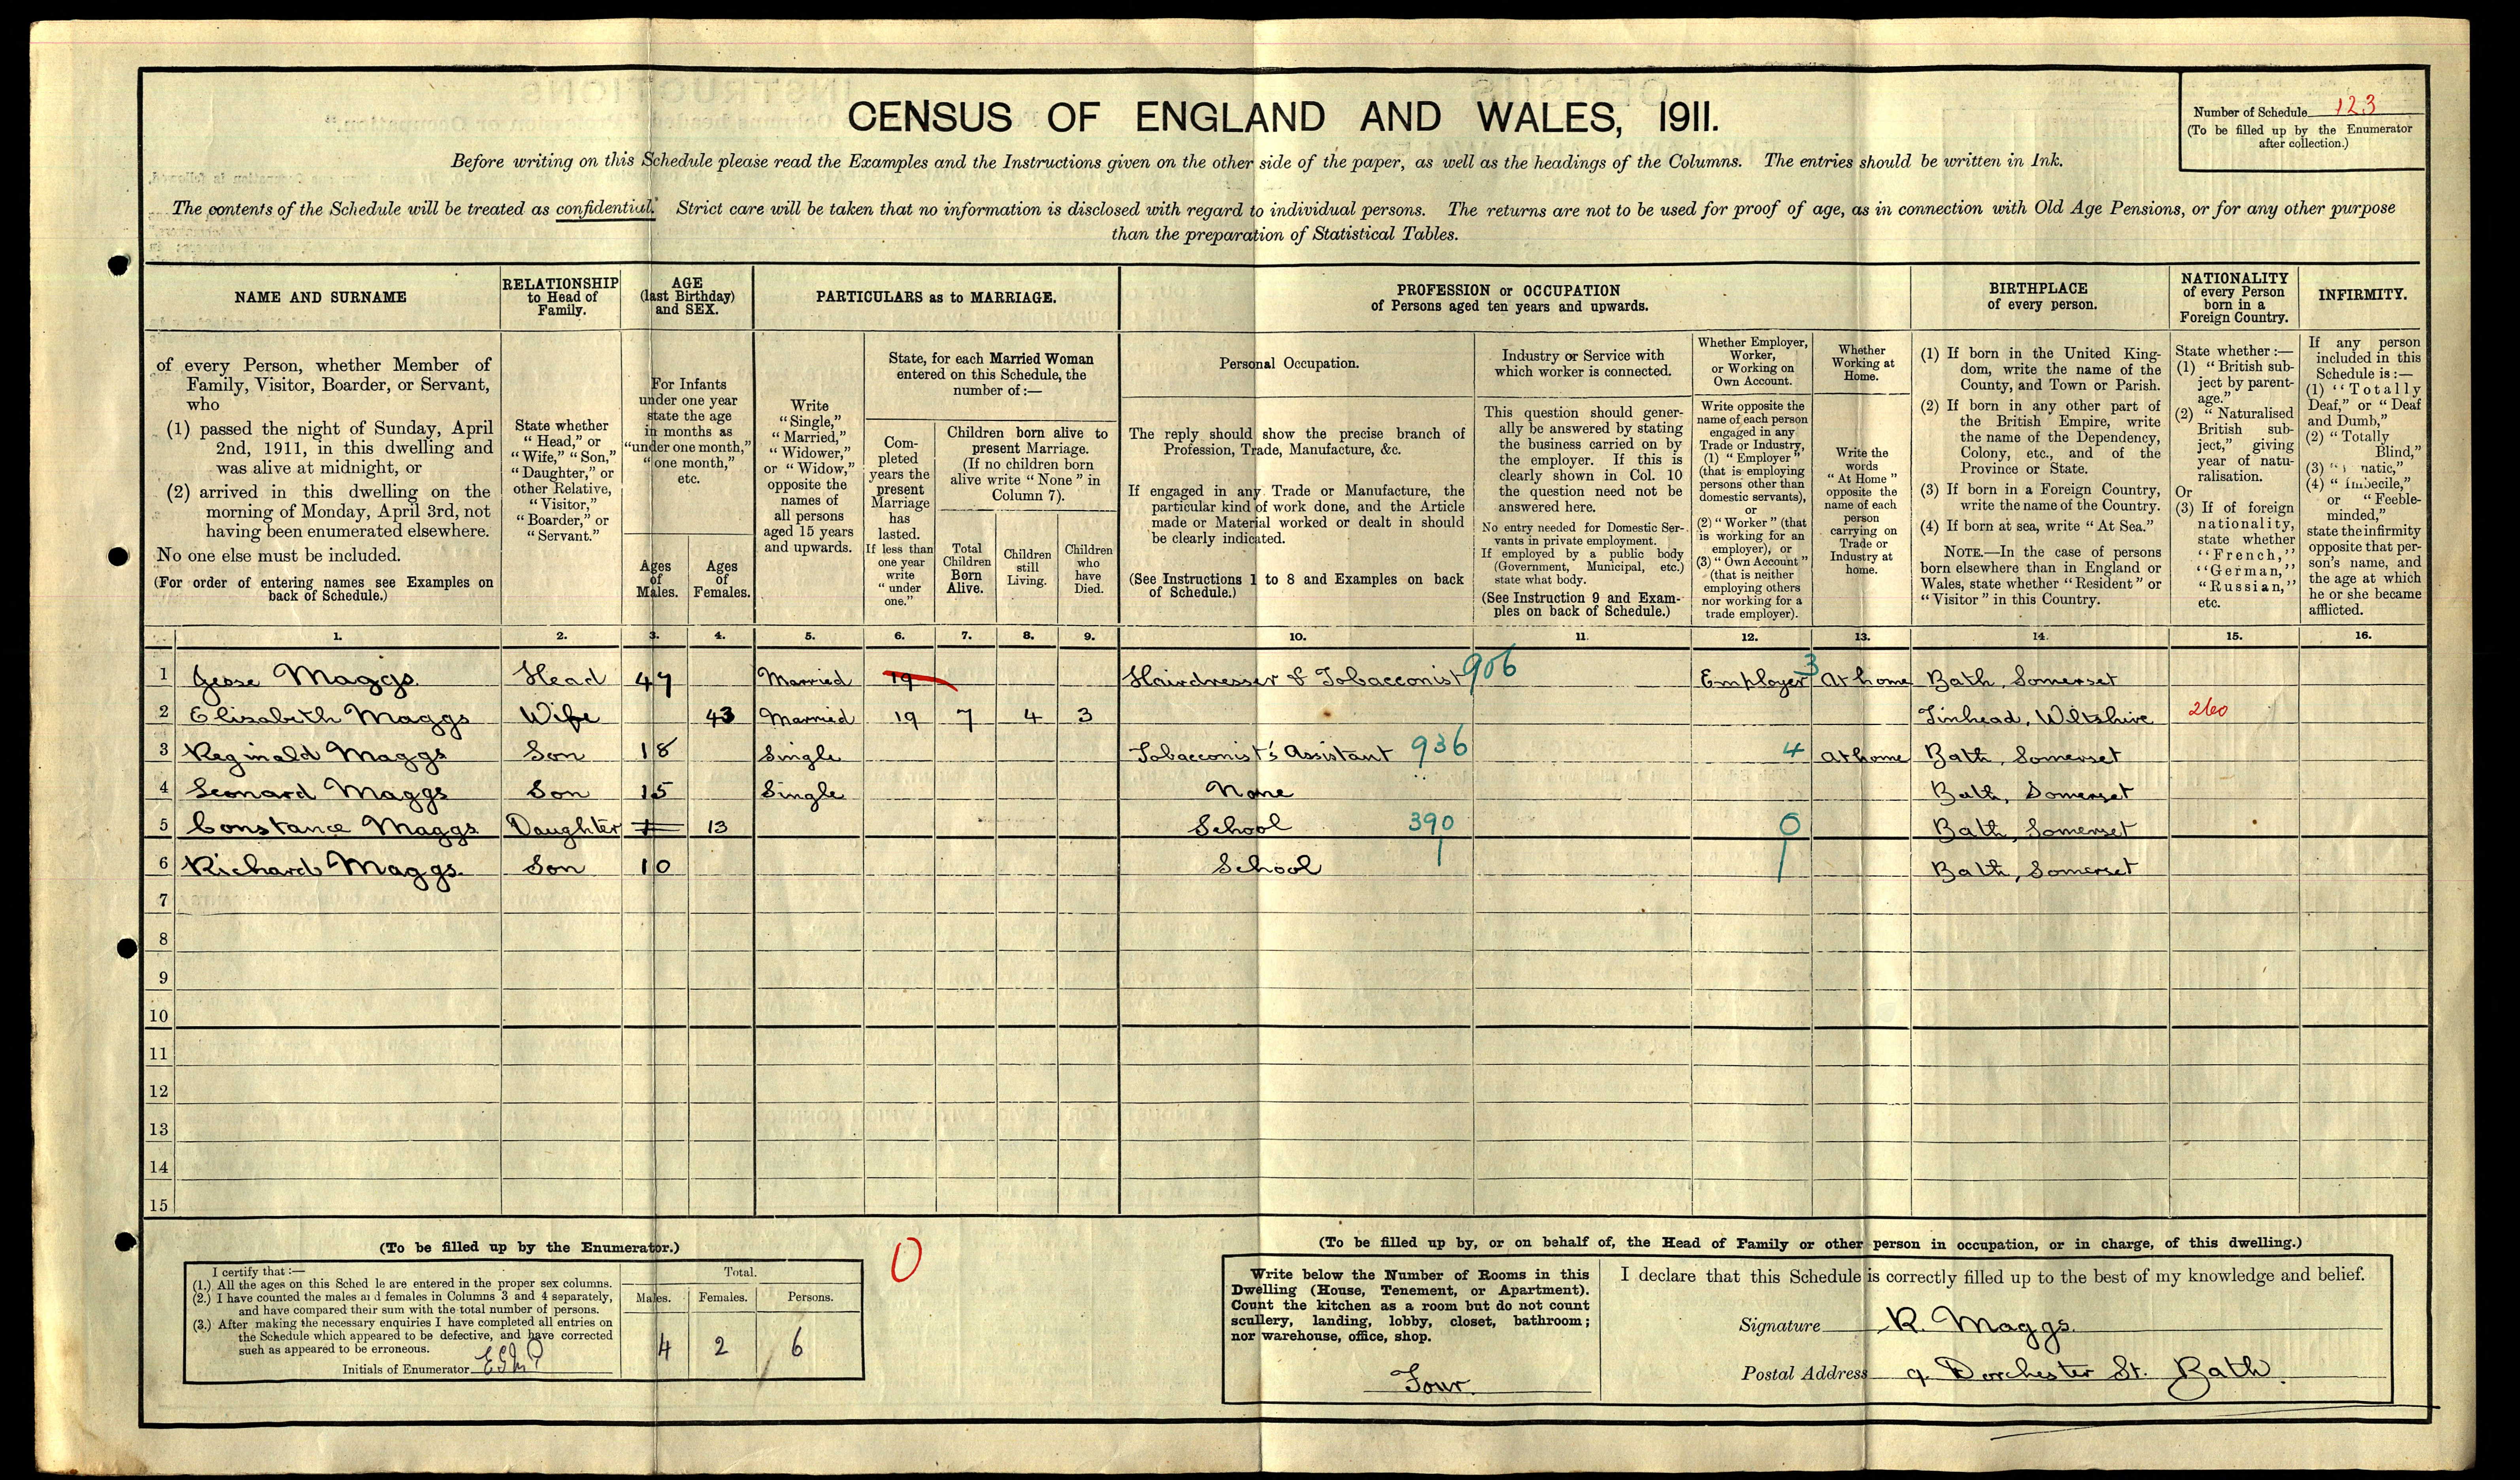 CENSUS OF ENGLAND AND WALES, 1911.
Number of Schedule 123
(To be filled up by the Enumerator
after collection.)
Before writing on this Schedule please read the Examples and the Instructions given on the other side of the paper, as well as the headings of the Columns. The entries should be written in Ink.
The contents of the Schedule will be treated as confidential. Strict care will be taken that no information is disclosed with regard to individual persons. The returns are not to be used for proof of age, as in connection with Old Age Pensions, or for any other purpose
than the preparation of Statistical Tables.
NAME AND SURNAME
of every Person, whether Member of
Family, Visitor, Boarder, or Servant,
who
(1) passed the night of Sunday, April
2nd, 1911, in this dwelling and
was alive at midnight, or
(2) arrived in this dwelling on the
morning of Monday, April 3rd, not
having been enumerated elsewhere.
No one else must be included.
(For order of entering names see Examples on
back of Schedule.)
RELATIONSHIP
to Head of
Family.
State whether
"Head," or
"Wife," "Son,"
"Daughter," or
other Relative,
"Visitor,"
"Boarder," or
"Servant."
AGE
(last Birthday)
and SEX.
For Infants
under one year
state the age
in months as
"under one month,"
"one month,"
etc.
Ages
of
Males.
Ages
of
Females.
PARTICULARS as to MARRIAGE.
Write
"Single,"
"Married,"
"Widower,"
or "Widow,"
opposite the
names of
all persons
aged 15 years
and upwards.
State, for each Married Woman
entered on this Schedule, the
number of:—
Com-
pleted
years the
present
Marriage
has
lasted.
If less than
one year
write
"under
one."
Children born alive to
present Marriage.
(If no children born
alive write "None" in
Column 7).
Total
Children
Born
Alive.
Children
still
Living.
Children
who
have
Died.
PROFESSION or OCCUPATION
of Persons aged ten years and upwards.
Personal Occupation.
The reply should show the precise branch of
Profession, Trade, Manufacture, &c.
If engaged in any Trade or Manufacture, the
particular kind of work done, and the Article
made or Material worked or dealt in should
be clearly indicated.
(See Instructions 1 to 8 and Examples on back
of Schedule.)
Industry or Service with
which worker is connected.
This question should gener-
ally be answered by stating
the business carried on by
the employer. If this is
clearly shown in Col. 10
the question need not be
answered here.
No entry needed for Domestic Ser-
vants in private employment.
If employed by a public body
(Government, Municipal, etc.)
state what body.
(See Instruction 9 and Exam-
ples on back of Schedule.)
Whether Employer,
Worker,
or Working on
Own Account.
Write opposite the
name of each person
engaged in any
Trade or Industry,
(1) "Employer"
(that is employing
persons other than
domestic servants),
or
(2) "Worker" (that
is working for an
employer), or
(3) "Own Account"
(that is neither
employing others
nor working for a
trade employer).
Whether
Working at
Home.
Write the
words
"At Home"
opposite the
name of each
person
carrying on
Trade or
Industry at
home.
BIRTHPLACE
of every person.
(1) If born in the United King-
dom, write the name of the
County, and Town or Parish.
(2) If born in any other part of
the British Empire, write
the name of the Dependency,
Colony, etc., and of the
Province or State.
(3) If born in a Foreign Country,
write the name of the Country.
(4) If born at sea, write "At Sea."
NOTE.—In the case of persons
born elsewhere than in England or
Wales, state whether "Resident" or
"Visitor" in this Country.
NATIONALITY
of every Person
born in a
Foreign Country.
State whether:—
(1) "British sub-
ject by parent-
age."
(2) "Naturalised
British sub-
ject," giving
year of natu-
ralisation.
Or
(3) If of foreign
nationality,
state whether
"French,"
"German,"
"Russian,"
etc.
INFIRMITY.
If any person
included in this
Schedule is:—
(1) "Totally
Deaf," or "Deaf
and Dumb,"
(2) "Totally
Blind,"
(3) "natic,"
(4) "Imbecile,"
or "Feeble-
minded,"
state the infirmity
opposite that per-
son's name, and
the age at which
he or she became
afflicted.
1. 2. 3. 4. 5. 6. 7. 8. 9. 10. 11. 12. 13. 14. 15. 16.
1 Jesse Maggs Head 47 Married 19 Hairdresser & Tobacconist 906 Employer 3 At home Bath, Somerset
2 Elisabeth Maggs Wife 43 Married 19 7 4 3 Tinhead, Wiltshire 260
3 Reginald Maggs Son 18 Single Tobacconist's Assistant 936 4 At home Bath, Somerset
4 Leonard Maggs Son 15 Single None Bath, Somerset
5 Constance Maggs Daughter 13 School 390 0 Bath, Somerset
6 Richard Maggs. Son 10 School Bath, Somerset
7
8
9
10
11
12
13
14
15
(To be filled up by the Enumerator.)
I certify that:—
(1.) All the ages on this Sched le are entered in the proper sex columns.
(2.) I have counted the males a d females in Columns 3 and 4 separately,
and have compared their sum with the total number of persons.
(3.) After making the necessary enquiries I have completed all entries on
the Schedule which appeared to be defective, and have corrected
such as appeared to be erroneous.
Initials of Enumerator
Total.
Males. Females. Persons.
4 2 6
0
(To be filled up by, or on behalf of, the Head of Family or other person in occupation, or in charge, of this dwelling.)
Write below the Number of Rooms in this
Dwelling (House, Tenement, or Apartment).
Count the kitchen as a room but do not count
scullery, landing, lobby, closet, bathroom;
nor warehouse, office, shop.
Four.
I declare that this Schedule is correctly filled up to the best of my knowledge and belief.
Signature R. Maggs.
Postal Address 9. Dorchester St. Bath.